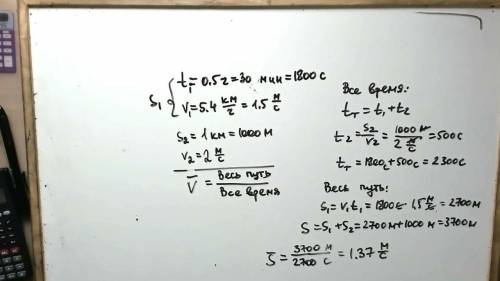 t₁=0.5 ч=30 мин=1800 с
S₁
V₁=5.4 км/ч=1.5 м/с
S₂=1 км=1000 м
V₂=2 м/с
V̅=Весь путь/Все время
Все время:
tт=t₁+t₂
t₂=S₂/V₂=1000 м/2 м/с=500с
tт=1800с+500с=2300с
Весь путь:
S₁=V₁t₁=1800с·1.5 м/с=2700м
S=S₁+S₂=2700м+1000м=3700м
S̅=3700 м/2700 с=1.37 м/с